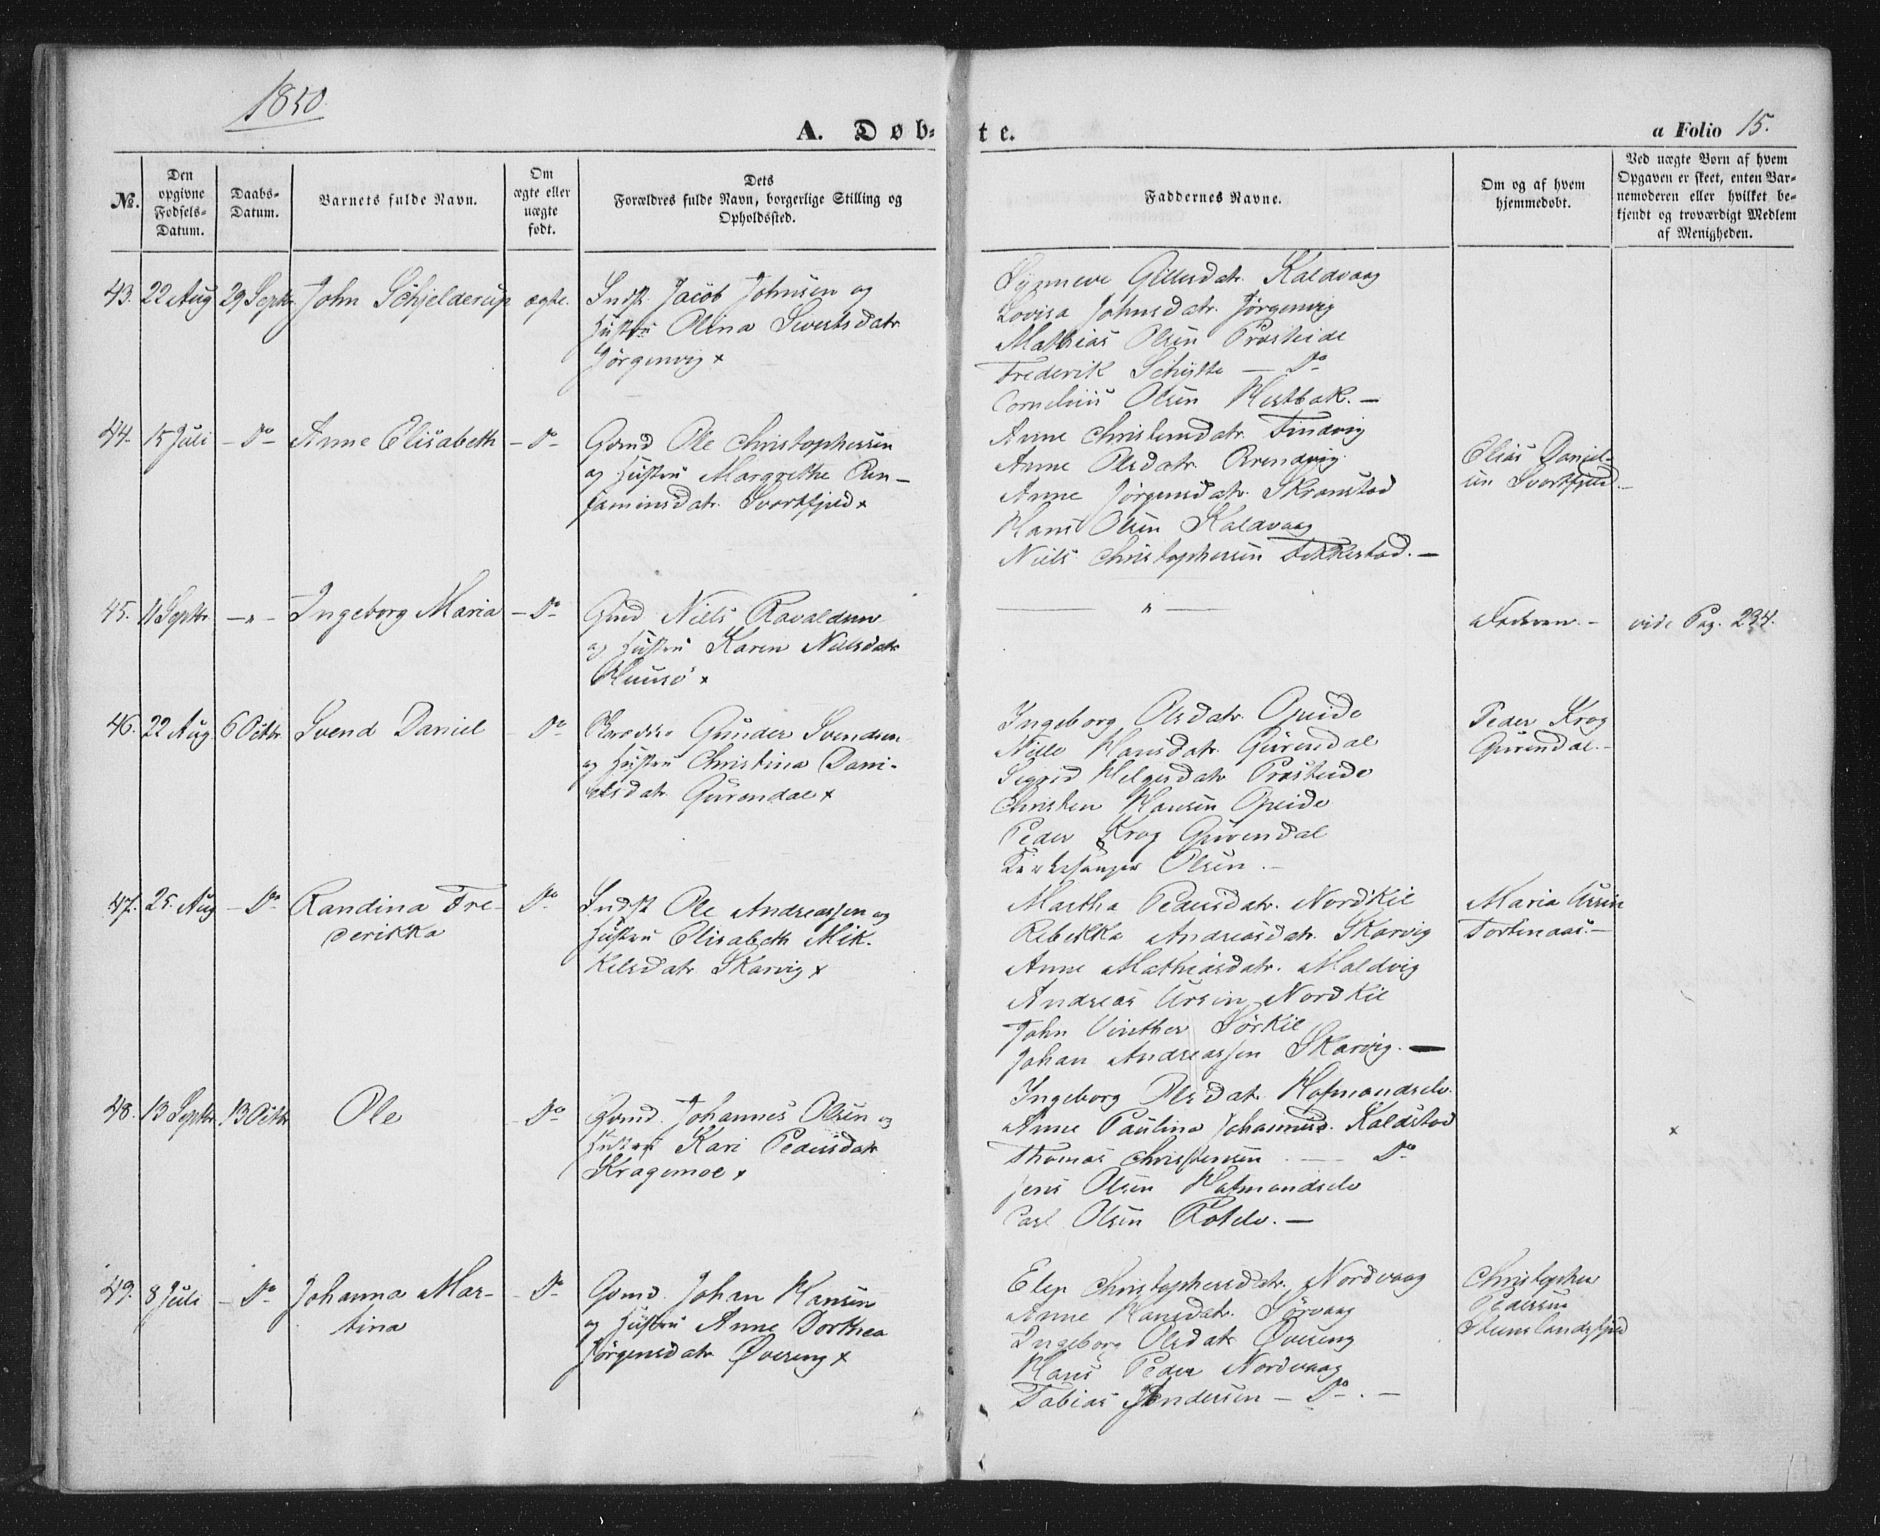 1850.
A. Døb-
te.
a Folio 15.
No.
Den opgivne Fødsels-Datum.
Daabs-Datum.
Barnets fulde Navn.
Om ægte eller uægte født.
Dets Forældres fulde Navn, borgerlige Stilling og Opholdssted.
Faddernes Navne.
Om og af hvem hjemmedøbt.
Ved uægte Børn af hvem Opgaven er skeet, enten Barnemoderen eller hvilket bekjendt og troværdigt Medlem af Menigheden.
43. 22 Aug 29 Septbr John Schjelderup ægte.
Indst. Jacob Johnsen og
Hustru Olina Sivertsdatr
Jørgenvig x
Synneve Gillesdatr. Kaldvaag
Lovisa Johnsdatr. Jørgenvig
Mathias Olsen Præsteide
Frederik Schytte — Do
Cornelius Olsen Hestbak. —
44. 15 Juli — Do — Anne Elisabeth — Do —
Gmd Ole Christophersen
og Hustru Margrethe Ben-
jaminsdatr. Svortfjeld x
Anne Christensdatr. Findvig
Anne Olsdatr. Brendvig.
Anne Jørgensdatr. Skranstad
Hans Olsen Kaldvaag
Niels Christophersen Fikkestad. —
Elias Daniel-
sen Svortfjeld. —
45. 11 Septbr — " — Ingeborg Maria — Do
Gmd Niels Ravaldsen
og Hustru Karen Nielsdatr
— " —
Faderen. —
vide Pag. 234.
46. 22 Aug 6 Octbr. Svend Daniel — Do
Gunder Svendsen
og Hustru Christina Dani-
elsdatr. Gurendal x
Ingeborg Olsdatr. Opeide
Nille Hansdatr. Gurendal
Sigrid Helgesdatr Præsteide
Christen Hansen Opeide
Peder Krog Gurendal
Kirkesanger Olsen. —
Peder Krog
Gurendal. —
47. 25. Aug — Do Randina Fre-
derikka
Do
Indst Ole Andreassen og
Hustru Elisabeth Mik-
kelsdatr Skarvig x
Martha Pedersdatr. Nordkil
Rebekka Andreasdatr. Skarvig
Anne Mathiasdatr. Maldvig
Andreas Ursin Nordkil
John Vinther Sørkil
Johan Andreassen Skarvig. —
Maria Ursin
Tortenaas. —
48. 13 Septbr. 13 Octbr Ole — Do
Gmd. Johannes Olsen og
Hustru Kari Pedersdatr
Kragemoe x
Ingeborg Olsdatr Hofmandselv.
Anne Paulina Johannesd. Kaldstad
Thomas Christensen — Do
Jens Olsen Hofmandselv
Carl Olsen Rotelv. —
x
49. 8 Juli — Do Johanna Mar-
tina
— Do —
Gmd. Johan Hansen
og Hustru Anne Dorthea
Jørgensdatr Øvereng x
Elen Christophersdatr. Nordvaag
Anne Hansdatr. Sørvaag
Ingeborg Olsdatr Øvereng
Hans Peder Nordvaag
Tobias Andersen — Do. —
Christopher
Pedersen
Stenslandsfjeld